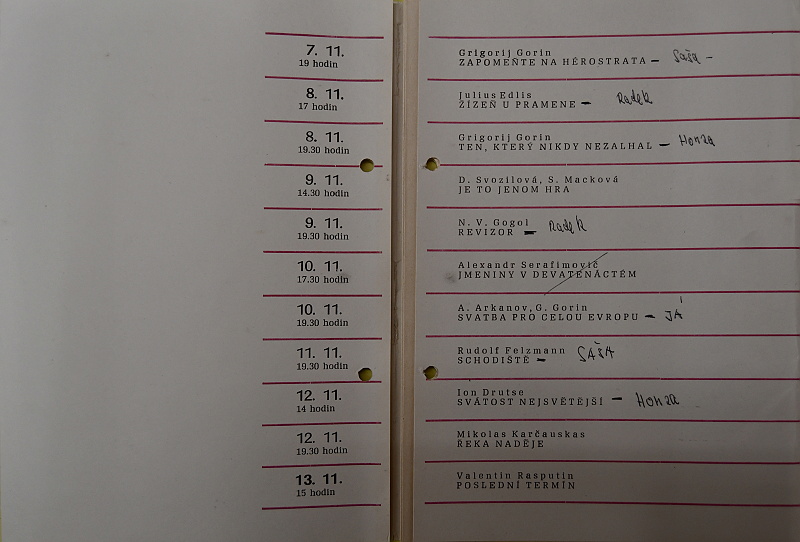 7. 11.
19 hodin
Grigorij Gorin
ZAPOMEŇTE NA HÉROSTRATA – Saša –
8. 11.
17 hodin
Julius Edlis
ŽÍZEŇ U PRAMENE – Radek
8. 11.
19.30 hodin
Grigorij Gorin
TEN, KTERÝ NIKDY NEZALHAL – Honza
9. 11.
14.30 hodin
D. Svozilová, S. Macková
JE TO JENOM HRA
9. 11.
19.30 hodin
N. V. Gogol
REVIZOR – Radek
10. 11.
17.30 hodin
Alexandr Serafimovič
JMENINY V DEVATENÁCTÉM
10. 11.
19.30 hodin
A. Arkanov, G. Gorin
SVATBA PRO CELOU EVROPU – JÁ
11. 11.
19.30 hodin
Rudolf Felzmann
SCHODIŠTĚ – SAŠA
12. 11.
14 hodin
Ion Drutse
SVÁTOST NEJSVĚTĚJŠÍ – Honza
12. 11.
19.30 hodin
Mikolas Karčauskas
ŘEKA NADĚJE
13. 11.
15 hodin
Valentin Rasputin
POSLEDNÍ TERMÍN